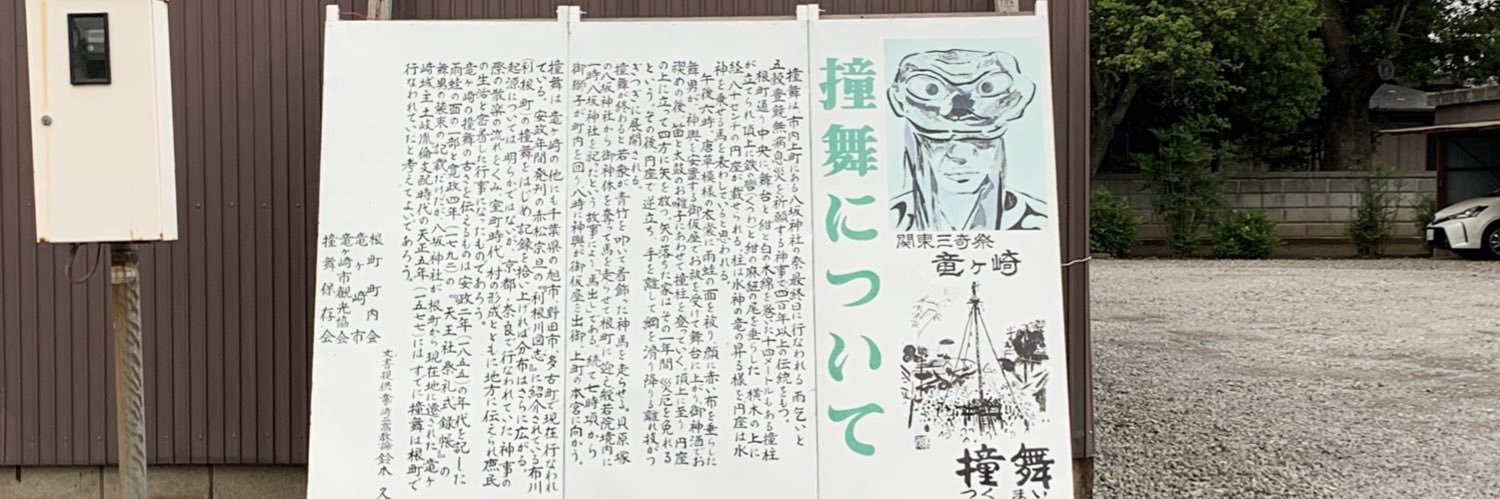 関東三奇祭
竜ヶ崎
撞舞
つくまい
撞舞について
撞舞は、市内上町にある八坂神社の祭最終日に行なわれる雨乞いと
五穀豊饒無病息災を祈願する神事で四百年以上の伝統をもつ。
根町通り中央に舞台と紺と白の木綿を巻きた十四メートルもある撞柱
が立てられ頂上に鉄の轡くつわと紺の麻紐の尾を垂らした横木の上に
経八十センチの円座が載せられる。柱は水神の竜の昇る様を円座は水
神を乗せる馬を表わしていると思われる。
午後六時、唐草模様の衣裳に雨蛙の面を被り、顔に赤い布を垂らした
舞男が、神輿を安置する御仮屋でお祓を受けて舞台に上がり御神酒でお
禊めの後、笛と太鼓のお囃子にあわせて撞柱を登っていく。頂上に至り円座
の上に立って四方に矢を放つ。矢の落ちた家はその一年間災厄を免れる
という。その後円座で逆立ち、手を離して綱を滑り降りる離れ技がつ
ぎつぎに展開される。
撞舞が終わると若衆が青竹で叩いて着飾った神馬を走らせる。貝原塚
の八坂神社から御神体を奪って馬を走らせて根町に迎え般若院境内に
一時八坂神社を祀ったとう故事により「馬出し」である。続いて七時頃から
御獅子が町内を回り、八時に神輿が御仮屋を出御、上町の本宮に向かう。
撞舞は、竜ヶ崎の他にも千葉県の旭市、野田市、多古町で現在行なわれ
ている。安政年間発刊の赤松宗旦の『利根川図志』に紹介されている布川
(利根町)の撞舞をはじめ、記録を拾い上げれば分布はさらに広がる。
起源については明らかではないが、京都・奈良で行なわれていた神事の
際の散楽の流れをくみ、室町時代、村の形成とともに地方に伝えられ庶民
の生活と密着した行事になったものであろう。
竜ヶ崎の撞舞の古さを伝えるものは安政二年(一八五五)の年代を記した
雨蛙の面の一部と寛政四年(一七九二)の『天王社祭礼式録帳』の
舞男の装束の記載だけだが、八坂神社が、根町から現在地に遷された竜ヶ
崎城主土岐胤倫支配時代の天正五年(一五七七)にはすでに撞舞は根町で
行なわれていたと考えてよいであろう。
文書提供竜ヶ崎一高教諭鈴木久
根町町内会
竜ヶ崎市
竜ヶ崎市観光協会
撞舞保存会